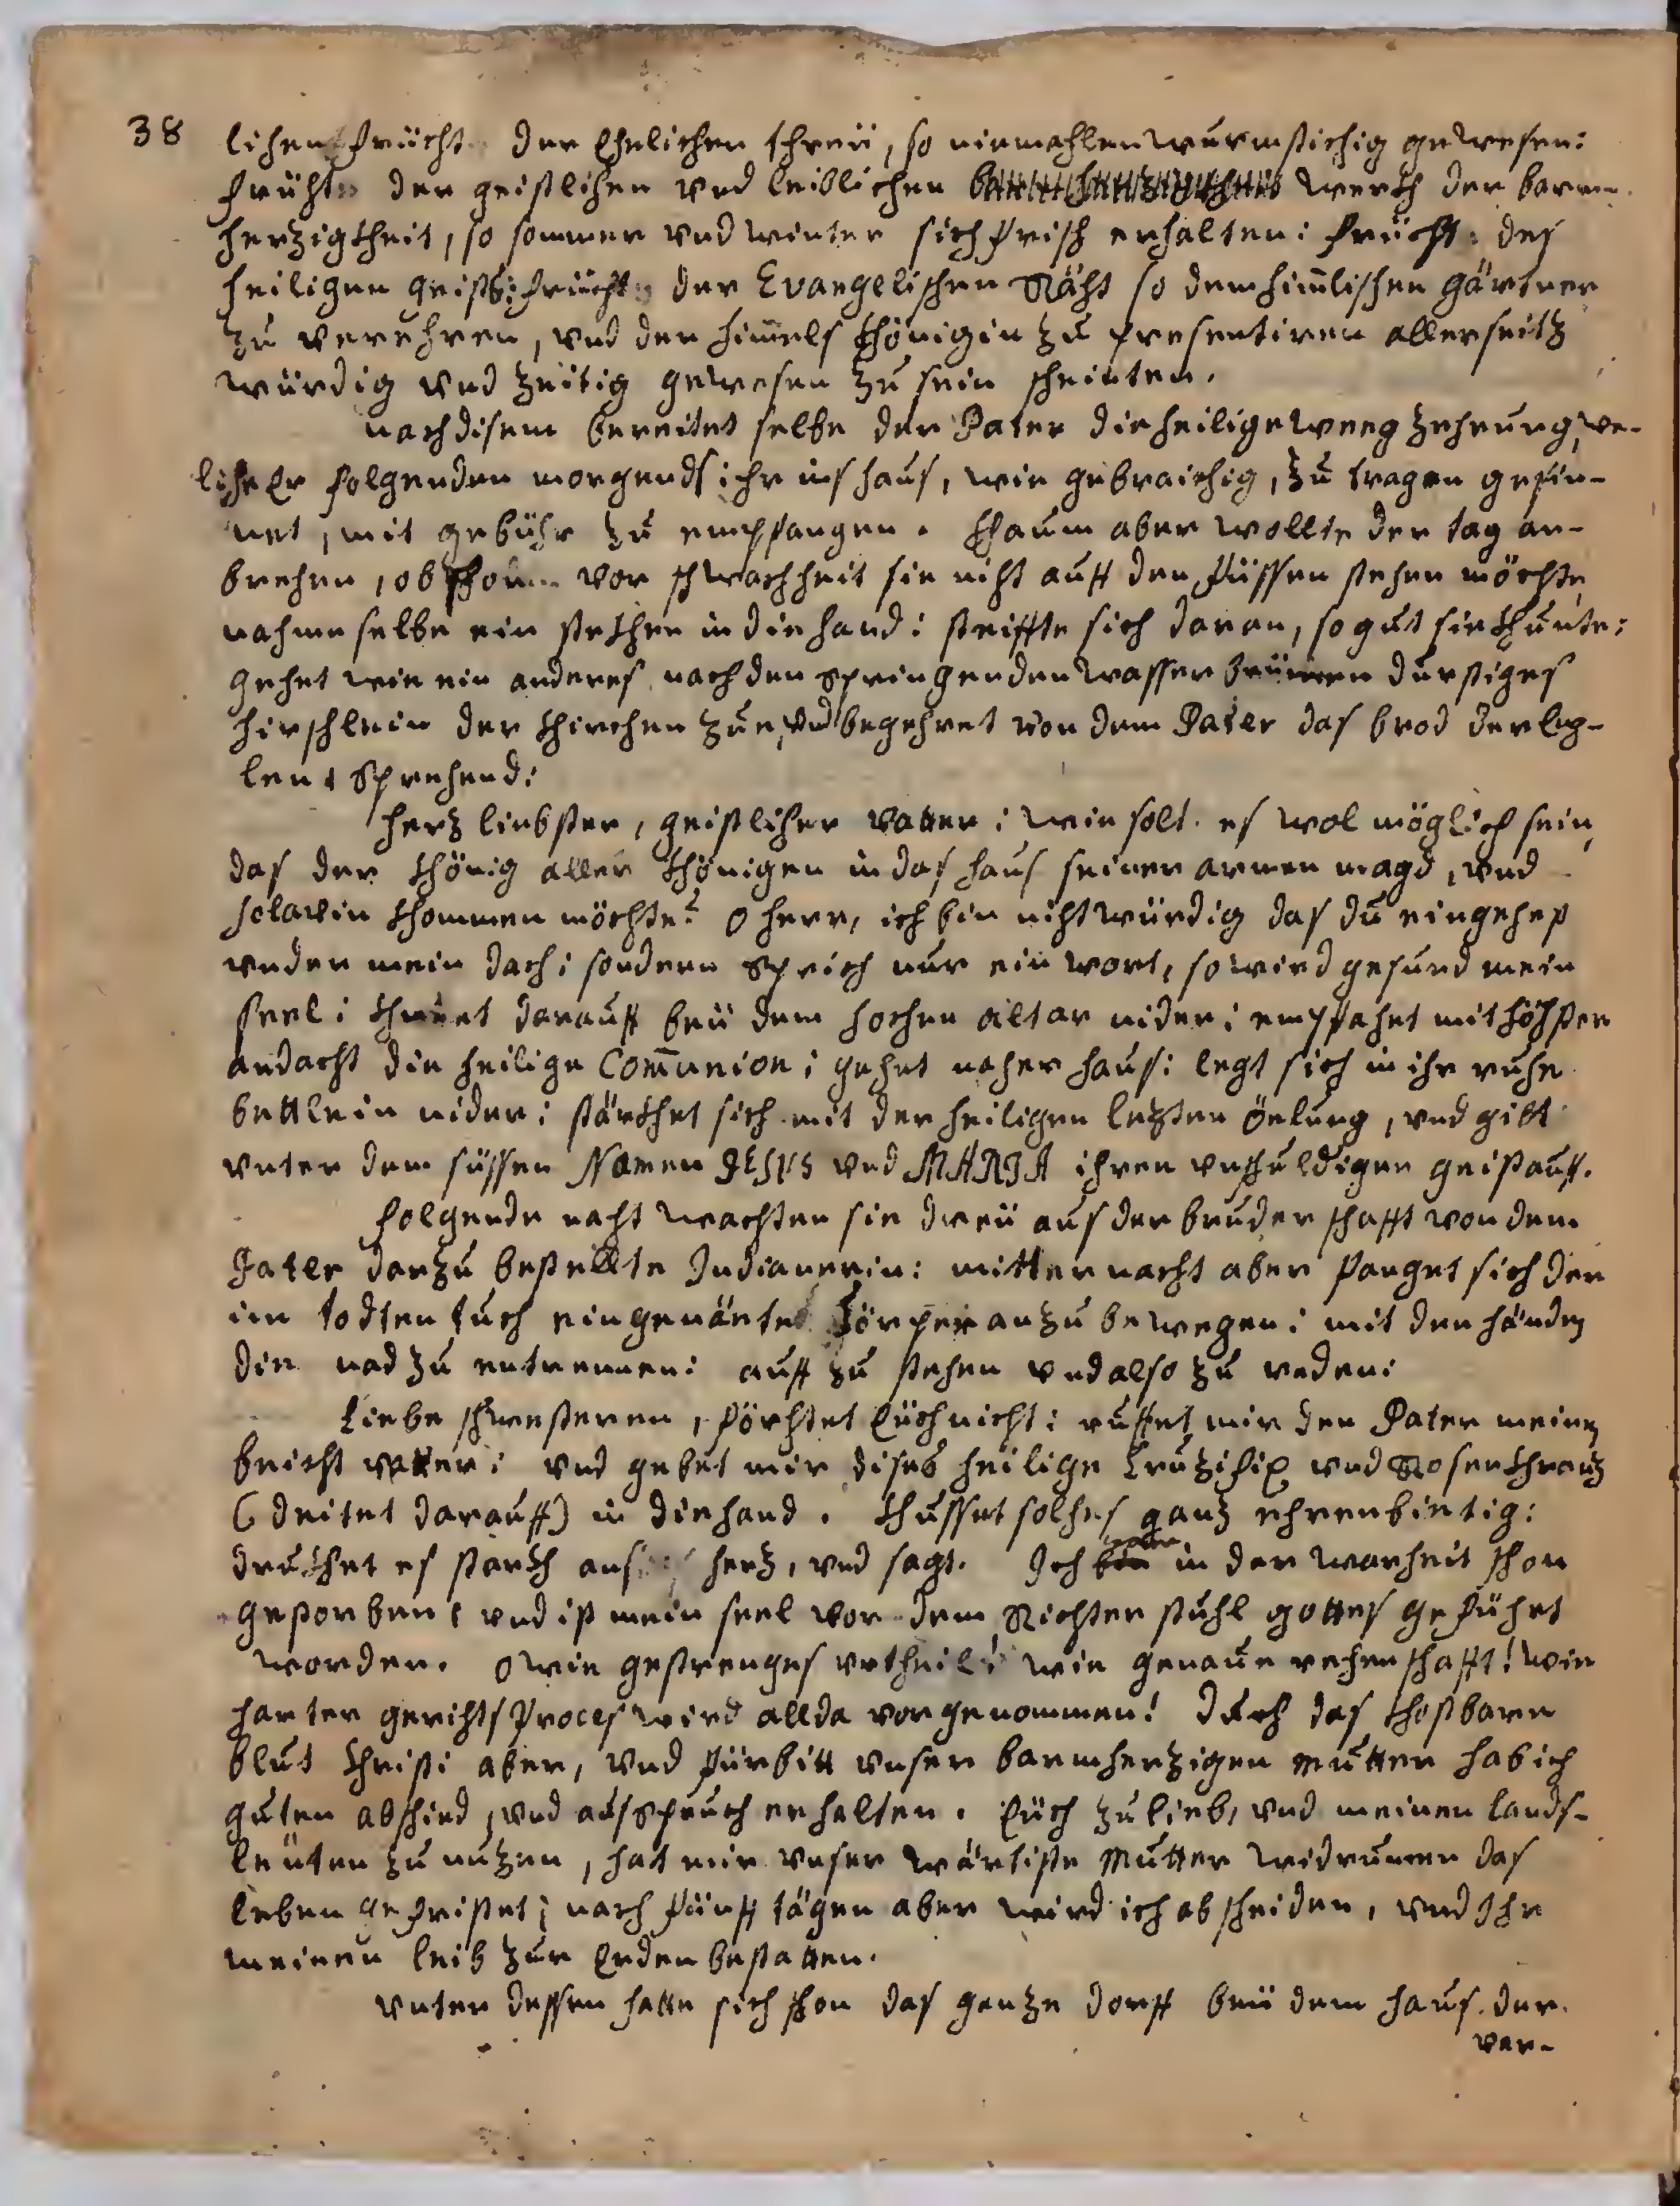 38 lichen früchte der Ehelichen threü, so niemahlen wurmstichig gewesen:
früchte der geistlichen vnd leiblichen werkh der barm-
herzigkheit, so sommer vnd winter sich frisch erhalten: früchte des
heiligen geists: früchte der Evangelischen Räht so dem himlischen gärtner
zu verehren, vnd der himels khönigin zu presentiren allerseitz
würdig vnd zeitig gewesen zu sein scheinten.
nach disem bereitet selbe der Pater die heilige weeg zehrung, we-
liche Er folgenden morgends ihr ins haus, wie gebraichig, zu tragen gesin-
net, mit gebühr zu empfangen. khaum aber wollte der tag an-
brechen, obschon vor schwachheit sie nicht auff den füssen stehen möchte,
nahme selbe ein stekhen in die hand: steiffte sich daran, so gut sie khunte:
gehet wie ein anderes nach den springenden wasser brünnen durstiges
hirschlein der khirchen zue, vnd begehret von dem Pater das brod der Eng-
len, sprehend:
herz liebster, geistlicher vatter: wie solt es wol möglich sein,
das der khönig aller khönigen in das haus seiner armen magd, vnd
sclavin khommen möchte? o herr, ich bin nicht würdig das du eingehest
vnder mein dach: sondern sprich nur ein wort, so wird gesund mein
seel: khnieet darauff beü dem hochen altar nider: empfahet mit höchster
andacht die heilige Com̄union: gehet nacher haus: legt sich in ihr ruhe
bettlein nider: stärkhet sich mit der heiligen letzten öelung, vnd gibt
vnter dem süssen Namen JESVS vnd MARJA ihren vnschuldigen geist auff.
folgende nacht wachten sie dreü aus der bruderschafft von dem
Pater darzu bestellte Indianerin: mitternacht aber fanget sich der
im todten tuch eingenänte Körper an zu bewegen: mit den händen
die nad zu entrennen: auff zu stehen vnd also zu reden:
Liebe schwesteren, förchtet Eüch nicht: ruffet mir den Pater meinen
beicht vatter: vnd gebet mir dises heilige Cruzifix vnd Rosenkhranz
(deitet darauff) in die hand. khusset solches ganz ehrenbietig:
drukhet es starkh ans herz, vnd sagt. Ich ware in der warheit schon
gestorben: vnd ist mein seel vor dem Richter stuhl gottes geführt
worden. o wie gestrenges vrtheil! wie genaue rechenschafft! wie
harter gerichts Proces wird allda vorgenommen! durch das khostbare
blut Christi aber, vnd fürbitt vnser barmherzigen mutter hab ich
guten abschied, vnd ausspruch erhalten. Eüch zu lieb, vnd meinen lands-
leüten zu nuzen, hat mir vnser wärtiste Mutter widrumen das
leben gefristet: nach fünff tägen aber wird ich abscheiden, vnd Ihr
meinen leib zur Erden bestatten.
vnter dessen hatte sich schon das ganze dorff beü dem haus der
ver-